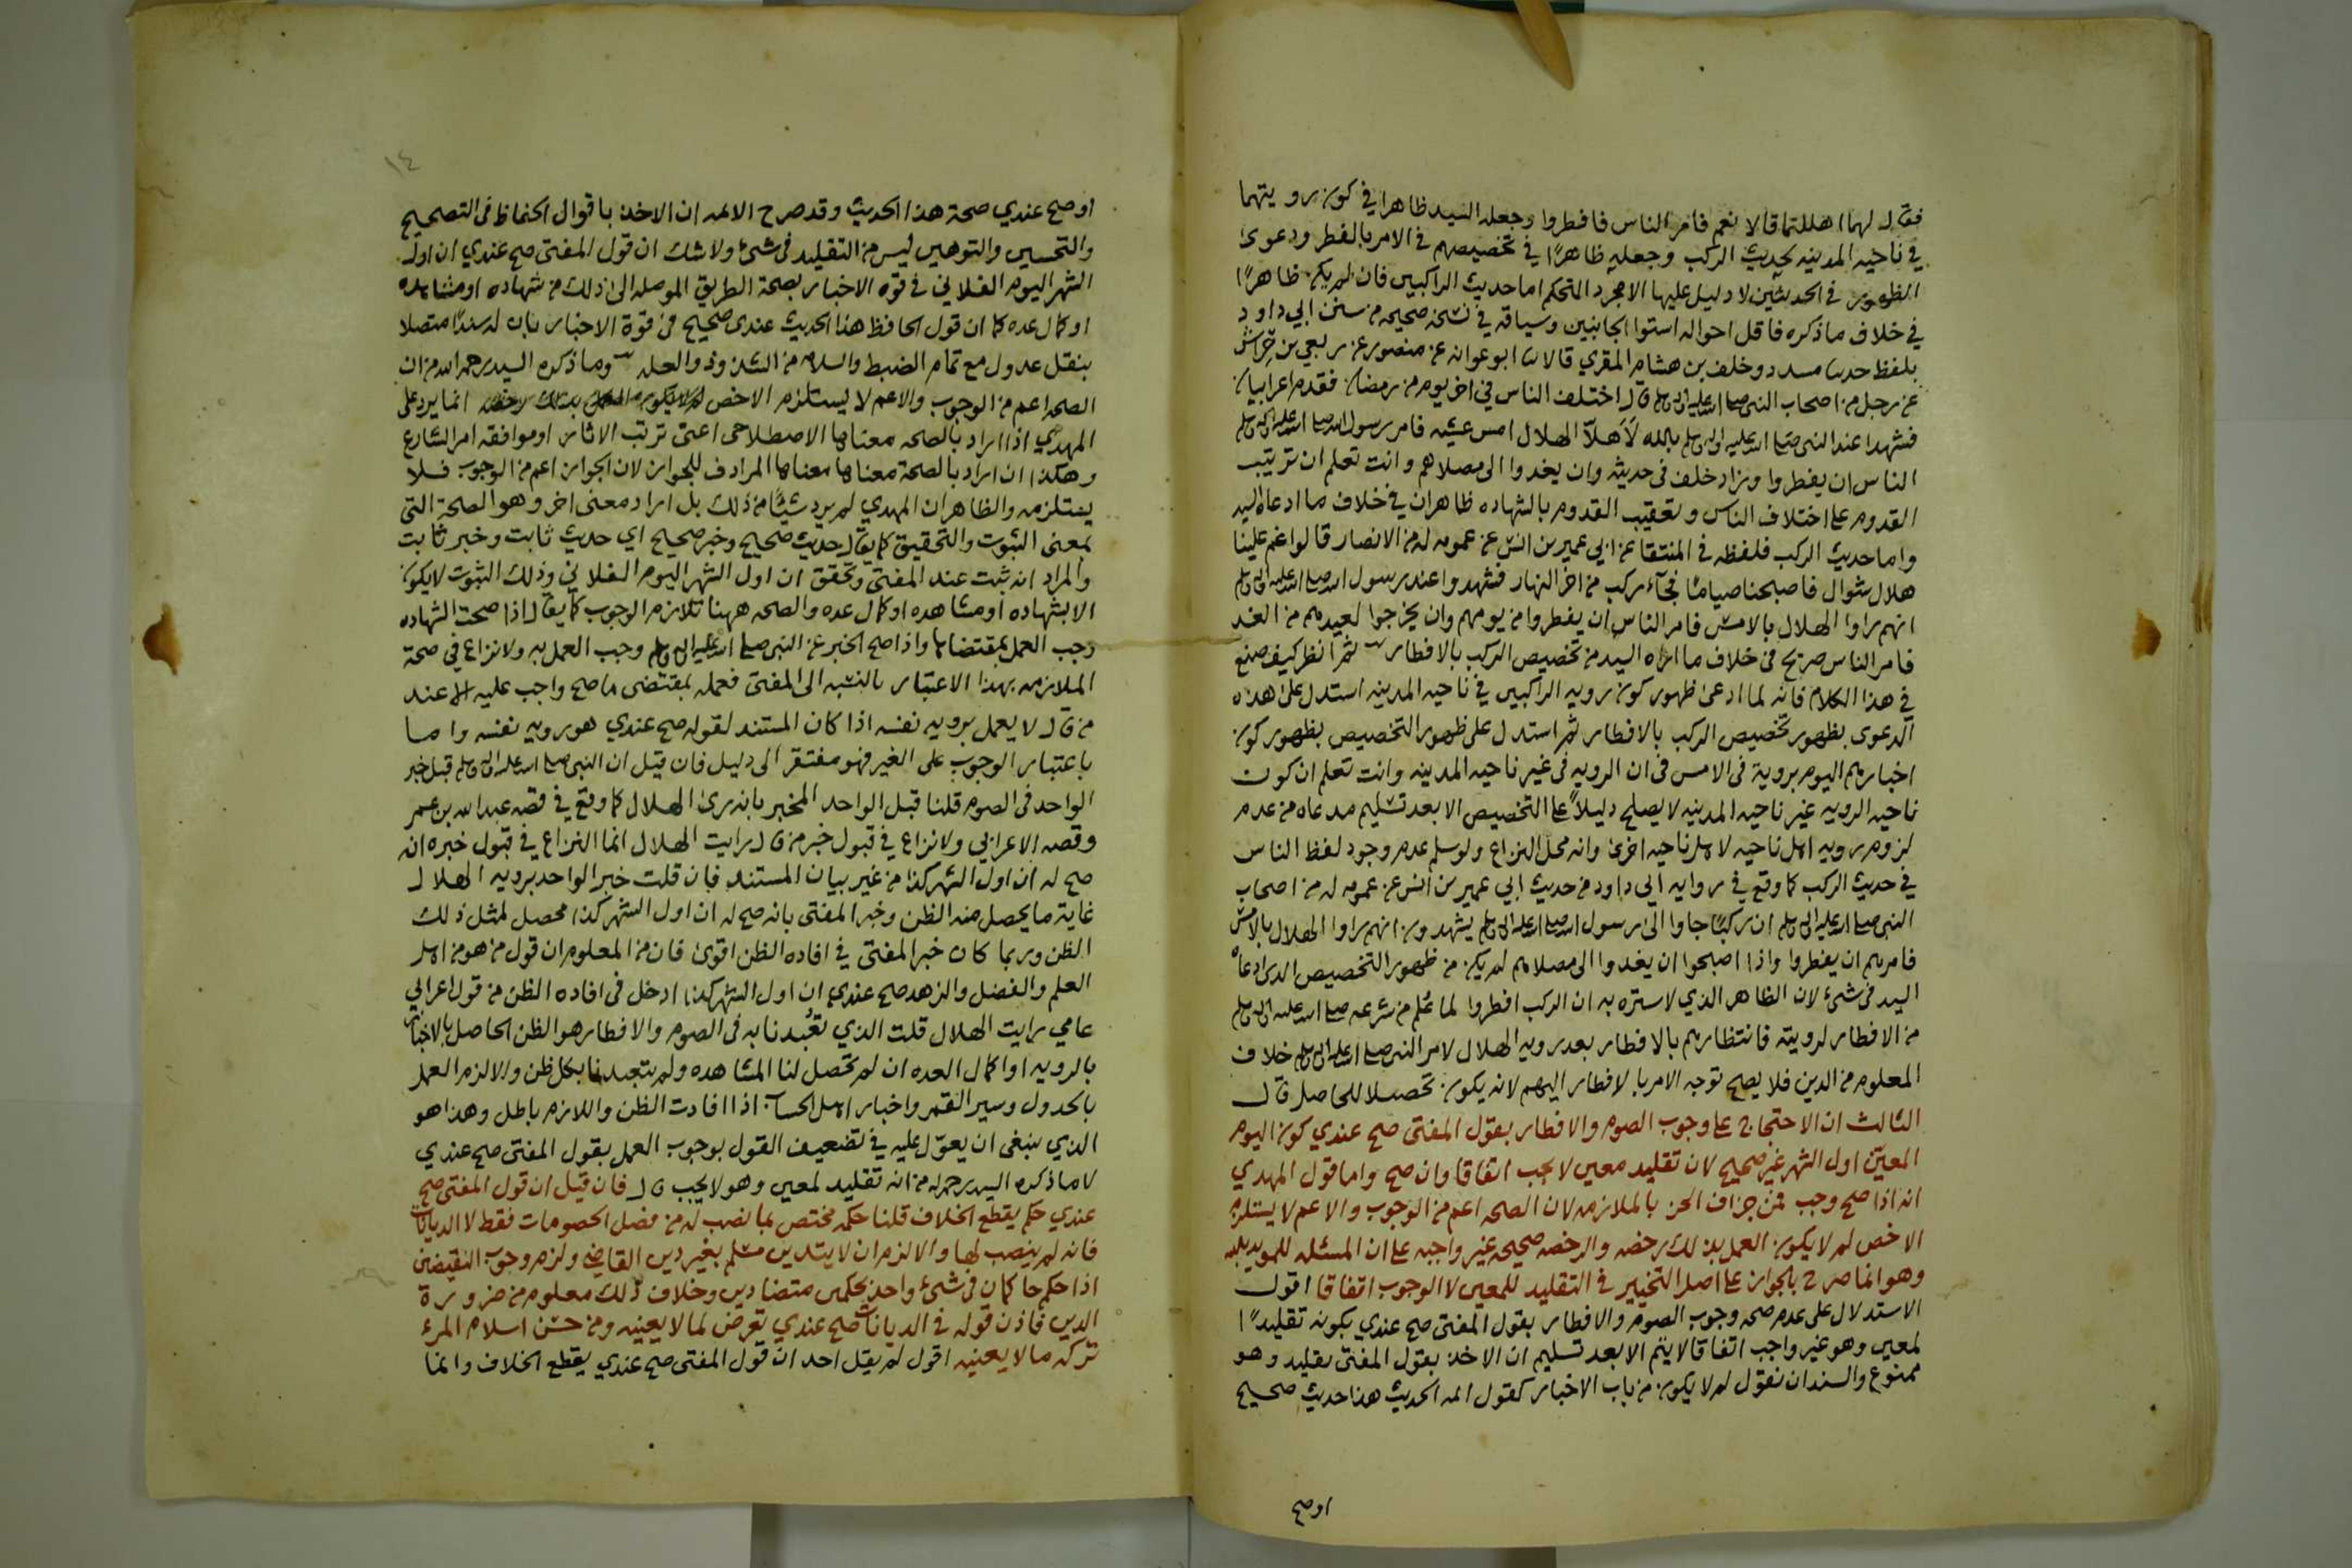 فقال لهما اهللتما قالا نعم فامر الناس فافطروا وجعله السيد ظاهرا في كون رويتهما
في ناحيه المدينه بحديث الركب وجعله ظاهرًا في تخصيصهم في الامر بالفطر ودعوى
الظهور في الحديثين لا دليل عليها الا مجرد التحكم اما حديث الراكبين فان لم يكن ظاهرًا
في خلاف ما ذكره فاقل احواله استوا الجانبين وسياقه في نسخه صحيحه من سنن ابي داود
بلفظ حدسا مسدد وخلف بن هشام المقري قالا سا ابو عوانه عن منصور عن ربعي بن حراش
عن رجل من اصحاب النبي صلى الله عليه واله وسلم قال اختلف الناس في اخر يوم من رمضان فقدم اعرابيان
فشهدا عند النبي صلى الله عليه واله وسلم بالله لَاَهلّا الهلال امس عشيه فامر رسول الله صلى الله عليه واله وسلم
الناس ان يفطروا وزاد خلف في حديثه وان يغدوا الى مصلاهم وانت تعلم ان ترتيب
القدوم على اختلاف الناس وتعقيب القدوم بالشهاده ظاهران في خلاف ما ادعاه السيد
واما حديث الركب فلفظه في المنتقا عن ابي عمير بن انس عن عمومه له من الانصار قالوا غم علينا
هلال شوال فاصبحنا صياما فجآء ركب من اخر النهار فشهدوا عند رسول الله صلى الله عليه واله وسلم
انهم راوا الهلال بالامس فامر الناس ان يفطروا من يومهم وان يخرجوا لعيدهم من الغد
فامر الناس صريح في خلاف ما اراه السيد من تخصيص الركب بالافطار ثم انظر كيف صنع
في هذا الكلام فانه لما ادعى ظهور كون رويه الراكبين في ناحيه المدينه استدل على هذه
الدعوى بظهور تخصيص الركب بالافطار ثم استدل على ظهور التخصيص بظهور كون
اخبارهم اليوم بروية في الامس في ان الرويه في غير ناحيه المدينه وانت تعلم ان كون
ناحيه الرويه غير ناحيه المدينه لا يصلح دليلاً على التخصيص الا بعد تسليم مدعاه من عدم
لزوم رويه اهل ناحيه لاهل ناحيه اخرى وانه محل النزاع ولو سلم عدم وجود لفظ الناس
في حديث الركب كما وقع في روايه ابي داود من حديث ابي عمير بن انس عن عمومه له من اصحاب
النبي صلى الله عليه واله وسلم ان ركبًا جاوا الى رسول الله صلى الله عليه واله وسلم يشهدون انهم راوا الهلال بالامس
فامرهم ان يفطروا واذا اصبحوا ان يغدوا الى مصلاهم لم يكن من ظهور التخصيص الذي ادعاه
السيد في شئ لان الظاهر الذي لا ستره به ان الركب افطروا لما عُلم من شرعه صلى الله عليه واله وسلم
من الافطار لرويته فانتظارهم بالافطار بعد رويه الهلال لامر النبي صلى الله عليه واله وسلم خلاف
المعلوم من الدين فلا يصح توجه الامر بالافطار اليهم لانه يكون تحصيلا للحاصل قال
الثالث ان الاحتجاج على وجوب الصوم والافطار بقول المفتي صح عندي كون اليوم
المعيّن اول الشهر غير صحيح لان تقليد معين لا يجب اتفاقا وان صح واما قول المهدي
انه اذا صح وجب فمن جزاف الحن بالملازمه لان الصحه اعم من الوجوب والاعم لا يستلزم
الاخص لم لا يكون العمل بذلك رخصه والرخصه صحيحه غير واجبه على ان المسئله للمويد بالله
وهو انما صرح بالجواز على اصل التخيير في التقليد للمعين لا الوجوب اتفاقا اقول
الاستدلال على عدم صحه وجوب الصوم والافطار بقول المفتي صح عندي بكونه تقليدًا
لمعين وهو غير واجب اتفاقا لا يتم الا بعد تسليم ان الاخذ بقول المفتى تقليد وهو
ممنوع والسندان نقول لم لا يكون من باب الاخبار كقول ائمه الحديث هذا حديث صحيح
اوصح
١٤
اوصح عندي صحة هذا الحديث وقد صرح الائمه ان الاخذ باقوال الحفاظ في التصحيح
والتحسين والتوهين ليس من التقليد في شئ ولا شك ان قول المفتى صح عندي ان اول
الشهر اليوم الفلاني في قوه الاخبار بصحة الطريق الموصله الى ذلك من شهاده او مشاهده
او كمال عده كما ان قول الحافظ هذا الحديث عندي صحيح في قوة الاخبار بان له سندًا متصلا
بنقل عدول مع تمام الضبط والسلامه من الشذوذ والعله وما ذكره السيد رحمه الله من ان
الصحه اعم من الوجوب والاعم لا يستلزم الاخص لم لا يكون العمل بذلك رخصه انما يرد على
المهدي اذا اراد بالصحه معناها الاصطلاحى اعنى ترتب الاثار او موافقه امر الشارع
وهكذا ان اراد بالصحة معناها معناها المرادف للجواز لان الجواز اعم من الوجوب فلا
يستلزمه والظاهر ان المهدي لم يرد شيئًا من ذلك بل اراد معنى اخر وهو الصحة التى
بمعنى الثبوت والتحقيق كما يقال حديث صحيح وخبر صحيح اي حديث ثابت وخبر ثابت
والمراد انه ثبت عند المفتي وتحقق ان اول الشهر اليوم الفلاني وذلك الثبوت لا يكون
الا بشهاده او مشاهده او كمال عده والصحه ههنا تلازم الوجوب كما يقال اذا صحت الشهاده
وجب العمل بمقتضاها واذا صح الخبر عن النبي صلى الله عليه واله وسلم وجب العمل به ولا نزاع في صحة
الملازمه بهذا الاعتبار بالنسبه الى المفتى فعمله بمقتضى ما صح واجب عليه الا عند
من قال لا يعمل برويه نفسه اذا كان المستند لقوله صح عندي هو رويه نفسه واما
باعتبار الوجوب على الغير فهو مفتقر الى دليل فان قيل ان النبي صلى الله عليه واله وسلم قبل خبر
الواحد في الصوم قلنا قبل الواحد المخبر بانه رئ الهلال كما وقع في قصه عبد الله بن عمر
وقصه الاعرابي ولا نزاع في قبول خبر من قال رايت الهلال انما النزاع في قبول خبره انه
صح له ان اول الشهر كذا من غير بيان المستند فان قلت خبر الواحد برويه الهلال
غاية ما يحصل منه الظن وخبر المفتى بانه صح له ان اول الشهر كذا محصل لمثل ذلك
الظن وربما كان خبر المفتى في افاده الظن اقوى فان من المعلوم ان قول من هو من اهل
العلم والفضل والزهد صح عندي ان اول الشهر كذا ادخل في افاده الظن من قول اعرابي
عامي رايت الهلال قلت الذي تعُبدنا به في الصوم والافطار هو الظن الحاصل بالاخبار
بالرويه او اكمال العده ان لم تحصل لنا المشاهده ولم نتعبدنا بكل ظن والا لزم العمل
بالجدول وسير القمر واخبار اهل الحساب اذا افادت الظن واللازم باطل وهذا هو
الذي ينبغى ان يعوّل عليه في تضعيف القول بوجوب العمل بقول المفتى صح عندي
لا ما ذكره السيد رحمه الله من انه تقليد لمعين وهو لا يجب قال فان قيل ان قول المفتى صح
عندي حكم يقطع الخلاف قلنا حكمه مختص بما نصب له من فصل الخصومات فقط لا الديانات
فانه لم ينصب لها والا لزم ان لا يتدين مسلم بغير دين القاضي ولزم وجوب النقيضين
اذا حكم حاكمان في شئ واحد بحكمين متضادين وخلاف ذلك معلوم من ضرورة
الدين فاذن قوله في الديانات صح عندي تعرض لما لا يعنيه ومن حسن اسلام المرء
تركه ما لا يعنيه اقول لم يقل احد ان قول المفتى صح عندي يقطع الخلاف وانما